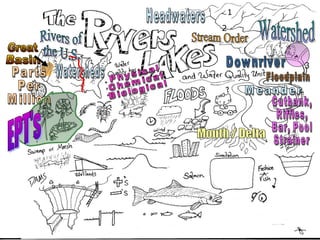 The
Rivers
&
Lakes
and Water Quality Unit
Headwaters
1
2
Stream Order
Watershed
Rivers of
the U.S.
Great
Basin
Parts
Per
Million
Watersheds
Water
Quality
Physical
Chemical
Biological
Downriver
Floodplain
Meander
Cutbank,
Riffles,
Bar, Pool
Strainer
FLOODS
EPT's
Mouth / Delta
Swamp or Marsh
Wetlands
DAMS
+'s
-'s
Salmon
Simulation
Fish